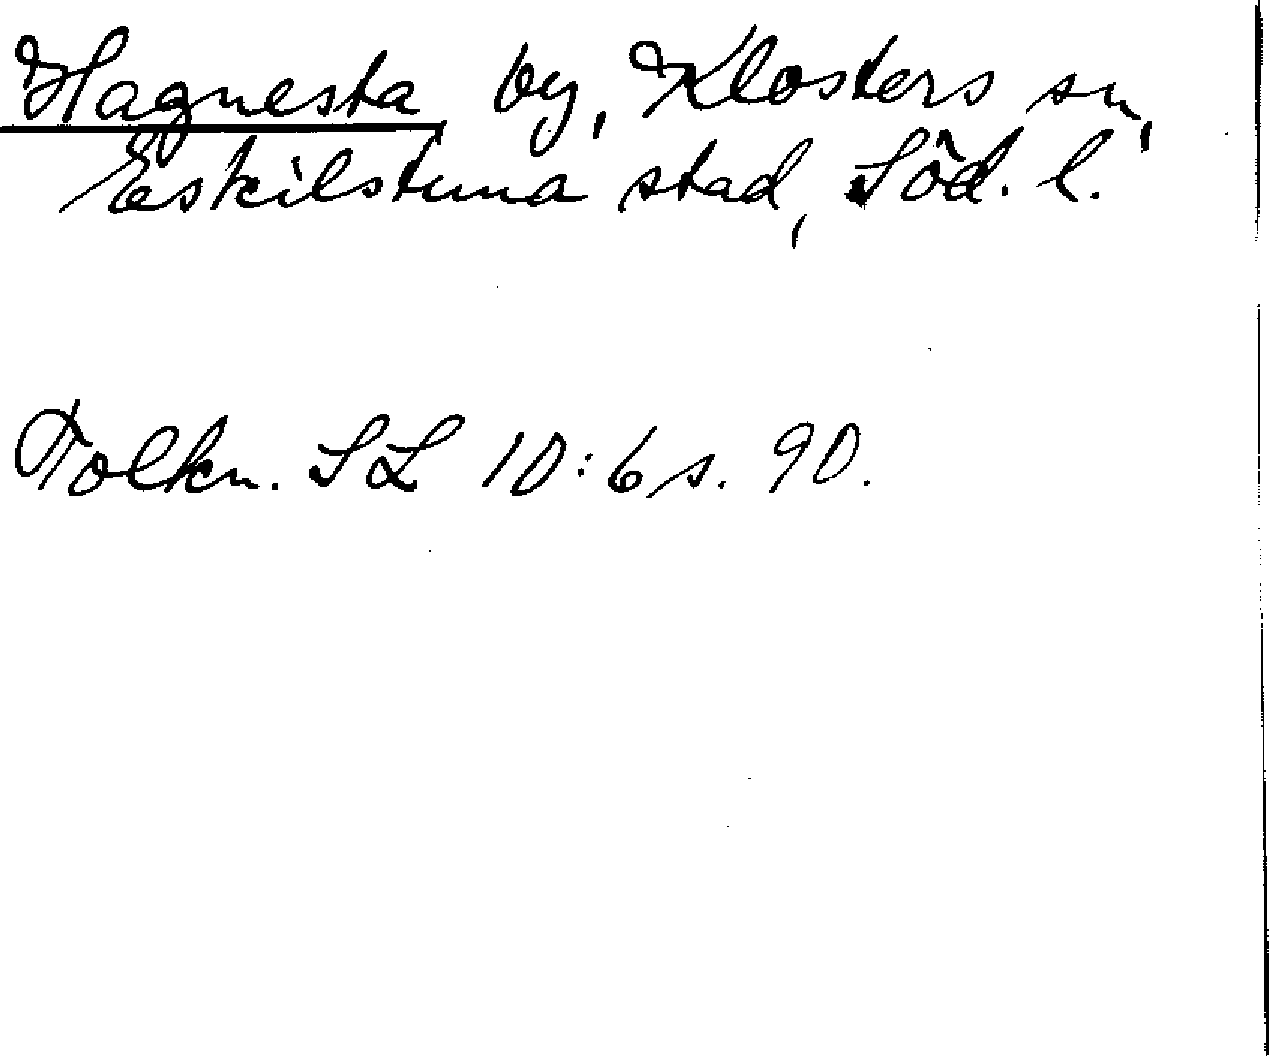 Hagnesta by, Klosters sn,
Eskilstuna stad, Söd. l.
Tolkn. SL 10:6 s. 90.